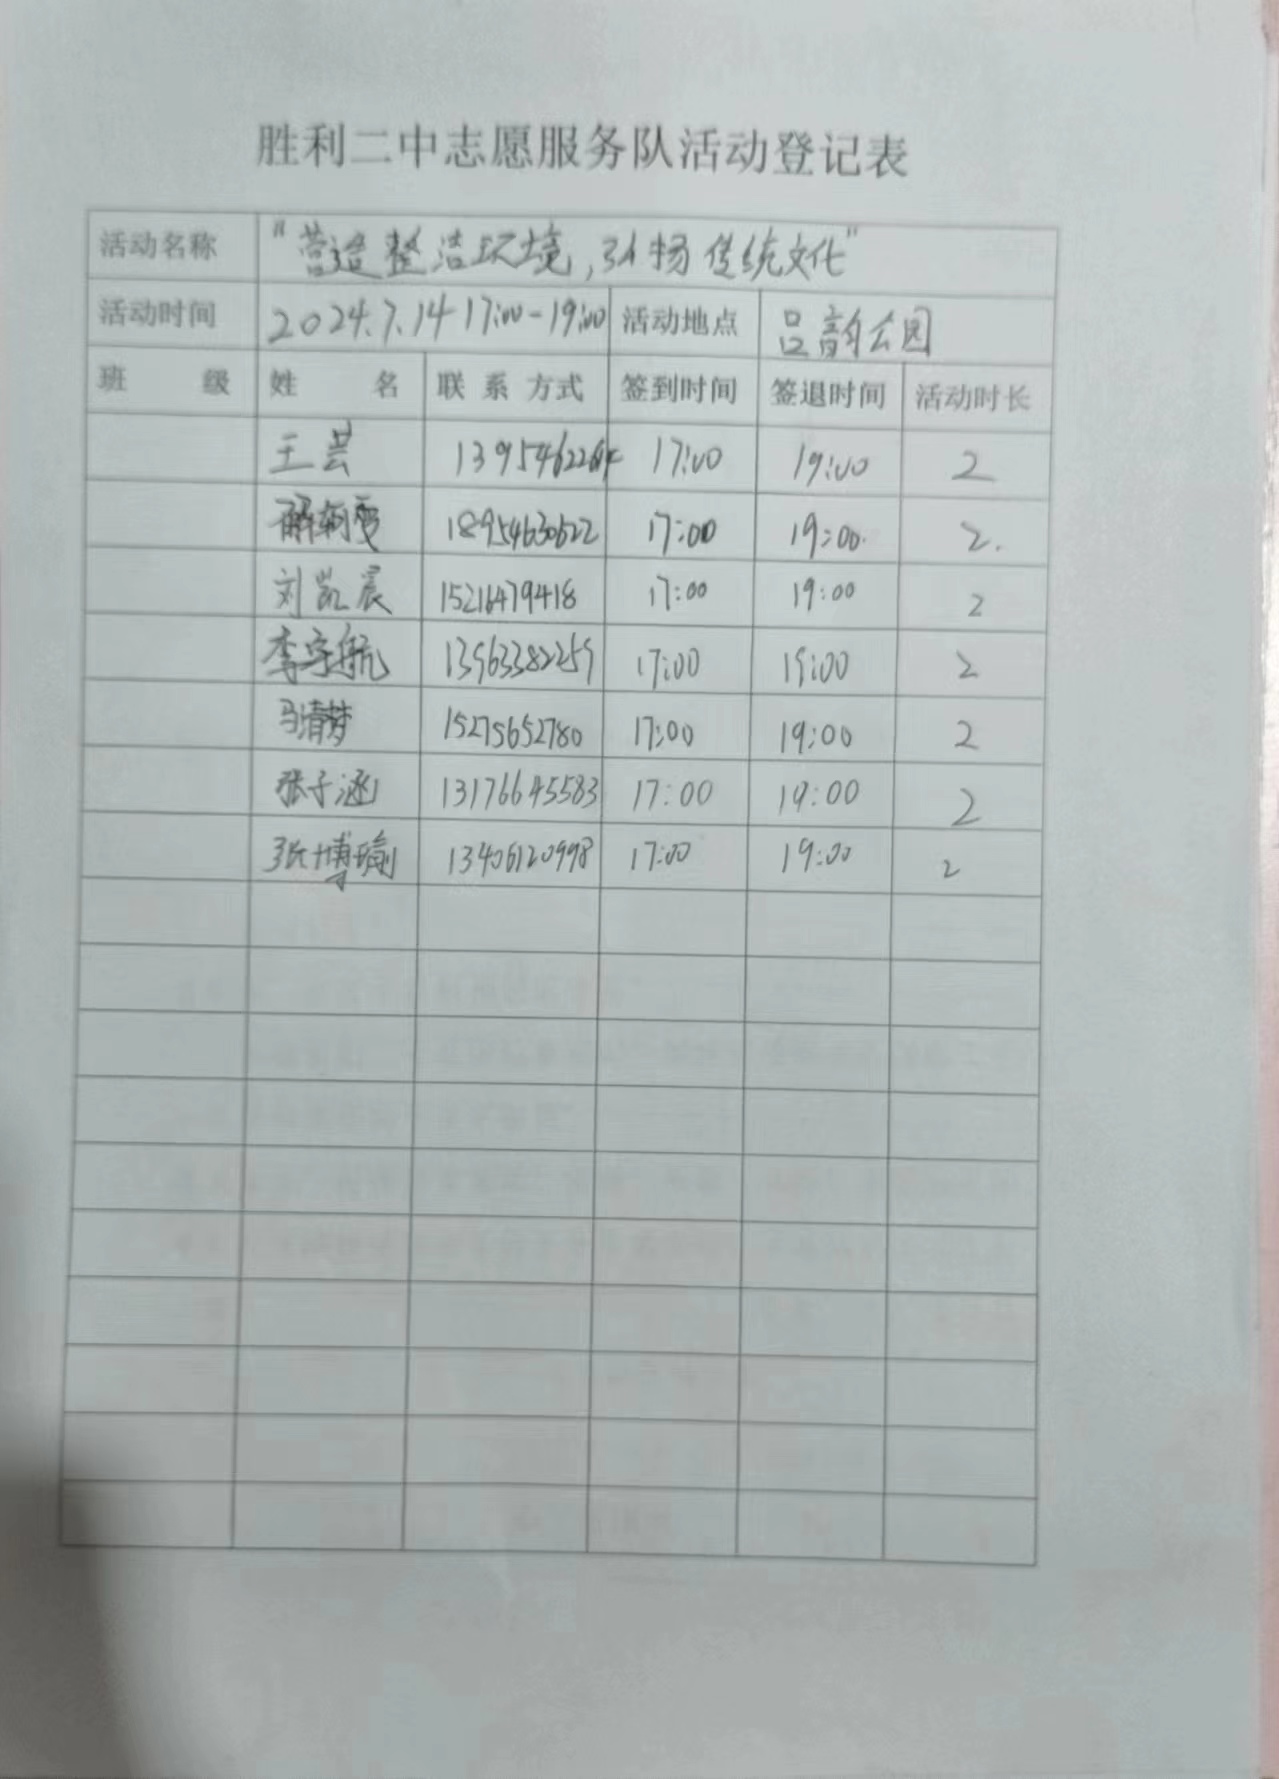 胜利二中志愿服务队活动登记表
活动名称 "营造整洁环境,弘扬传统文化"
活动时间 2024.7.14 17:00-19:00 活动地点 吕韵公园
班 级 姓 名 联 系 方式 签到时间 签退时间 活动时长
王芸 17:00 19:00 2
18954630622 17:00 19:00. 2.
刘凯宸 15216479418 17:00 19:00 2
李宇航 13963382259 17:00 19:00 2
马清梦 15275652780 17:00 19:00 2
张子涵 13176645583 17:00 19:00 2
张博瑜 13406120998 17:00 19:00 2